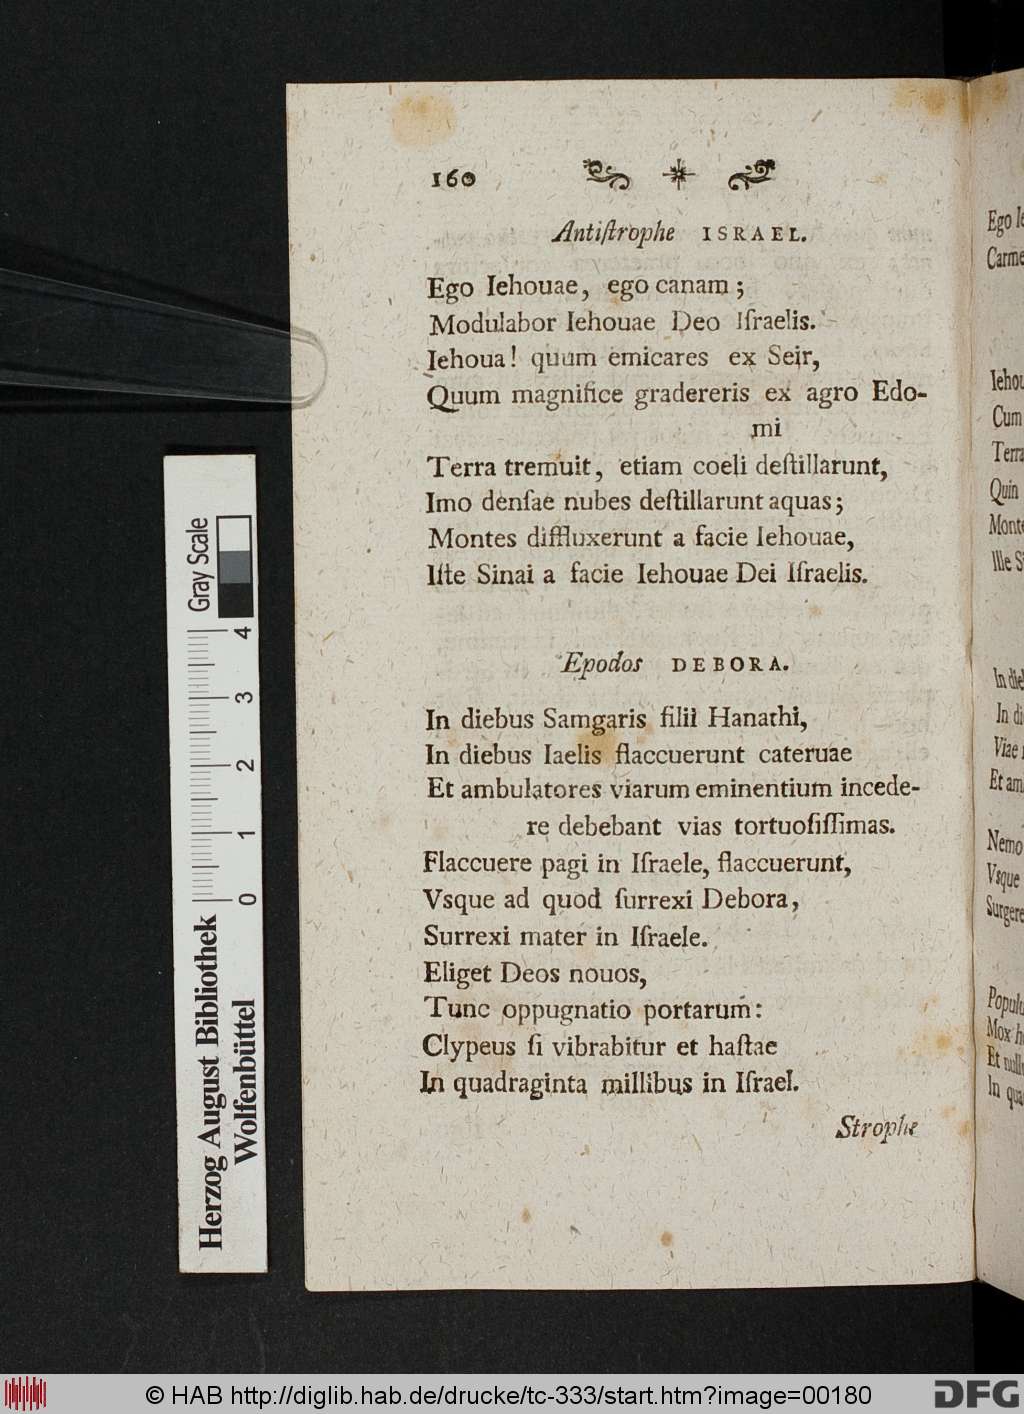 160
Antiſtrophe ISRAEL.
Ego Iehouae, ego canam;
Modulabor Iehouae Deo Iſraelis.
Iehoua! quum emicares ex Seir,
Quum magnifice gradereris ex agro Edo-
mi
Terra tremuit, etiam coeli deſtillarunt,
Imo denſae nubes deſtillarunt aquas;
Montes diffluxerunt a facie Iehouae,
Iſte Sinai a facie Iehouae Dei Iſraelis.
Epodos DEBORA.
In diebus Samgaris filii Hanathi,
In diebus Iaelis flaccuerunt cateruae
Et ambulatores viarum eminentium incede-
re debebant vias tortuoſiſſimas.
Flaccuere pagi in Iſraele, flaccuerunt,
Vsque ad quod ſurrexi Debora,
Surrexi mater in Iſraele.
Eliget Deos nouos,
Tunc oppugnatio portarum:
Clypeus ſi vibrabitur et haſtae
In quadraginta millibus in Iſrael.
Strophe
Ego Ie
Carme
Iehou
Cum
Terra
Quin
Monte
Ille S
In die
In di
Viae
Et am
Nemo
Vsque
Surgere
Popul
Mox h
Et null
In qua
Gray Scale
4
3
2
1
0
Herzog August Bibliothek
Wolfenbüttel
© HAB http://diglib.hab.de/drucke/tc-333/start.htm?image=00180
DFG